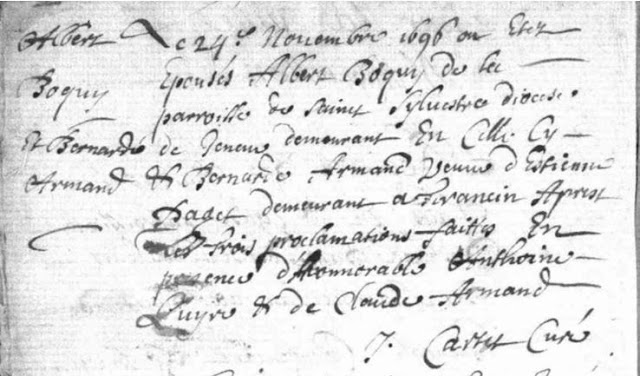 Albert
Boquy
Et Bernarde
Armand
Le 24e Novembre 1696 on Estez
Epousés Albert Boquy de la
parroisse de Saint Sylvestre diocese
de Geneve demeurant En Celle Cy
& Bernarde Armand veuve d'Estienne
Padet demeurant a Francin Aprest
Les trois proclamations faittes En
presence d'Honnorable Anthoine
& de Claude Armand
J. Curé